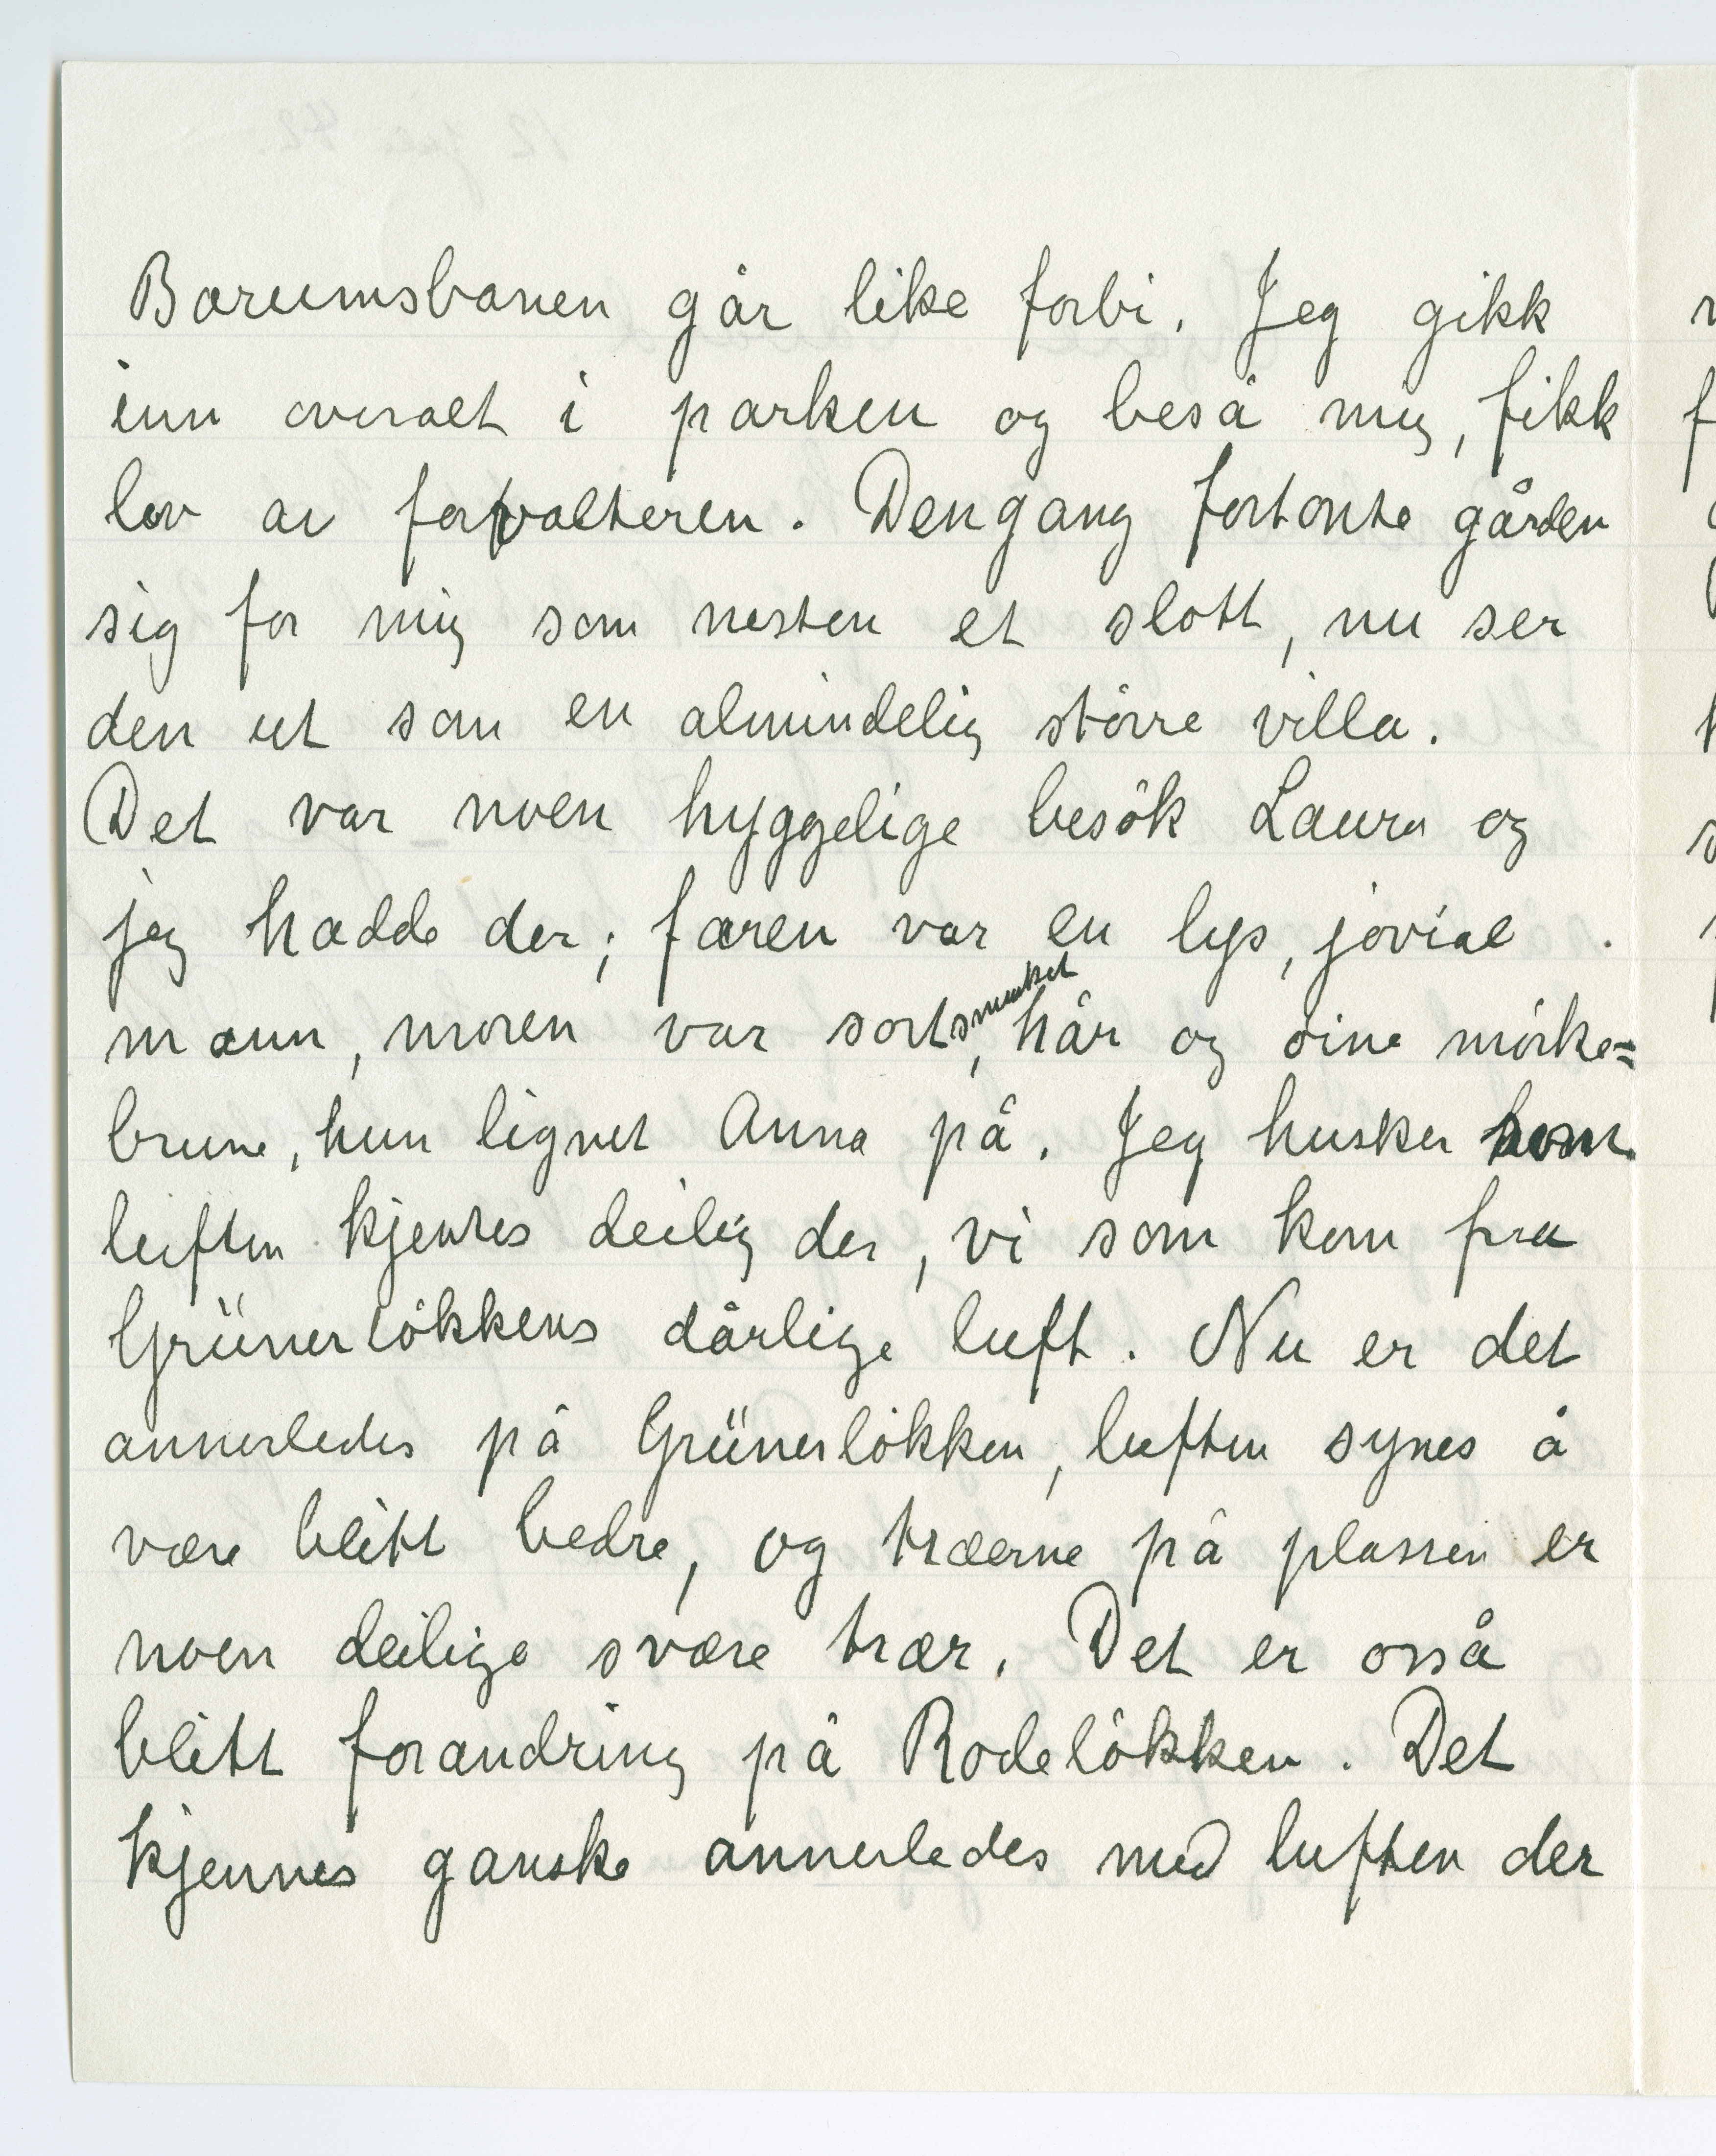 Bærumsbanen går like forbi. Jeg gikk
inn overalt i parken og beså mig, fikk
lov av forvalteren. Dengang fortonte gården
sig for mig som nesten et slott, nu ser
den ut som en almindelig större villa.
Det var noen hyggelige besök Laura og
jeg hadde der; faren var en lys, jovial
mann, moren var sortsmusket, hår og öine mörke=
brune, hun lignet Anna på. Jeg husker som
luften kjentes deilig der, vi som kom fra
Grünerlökkens dårlige luft. Nu er det
annerledes på Grünerlökken, luften synes å
være blitt bedre, og træerne på plassen er
noen deilige svære trær. Det er osså
blitt forandring på Rodelökken. Det
kjennes ganske annerledes med luften der